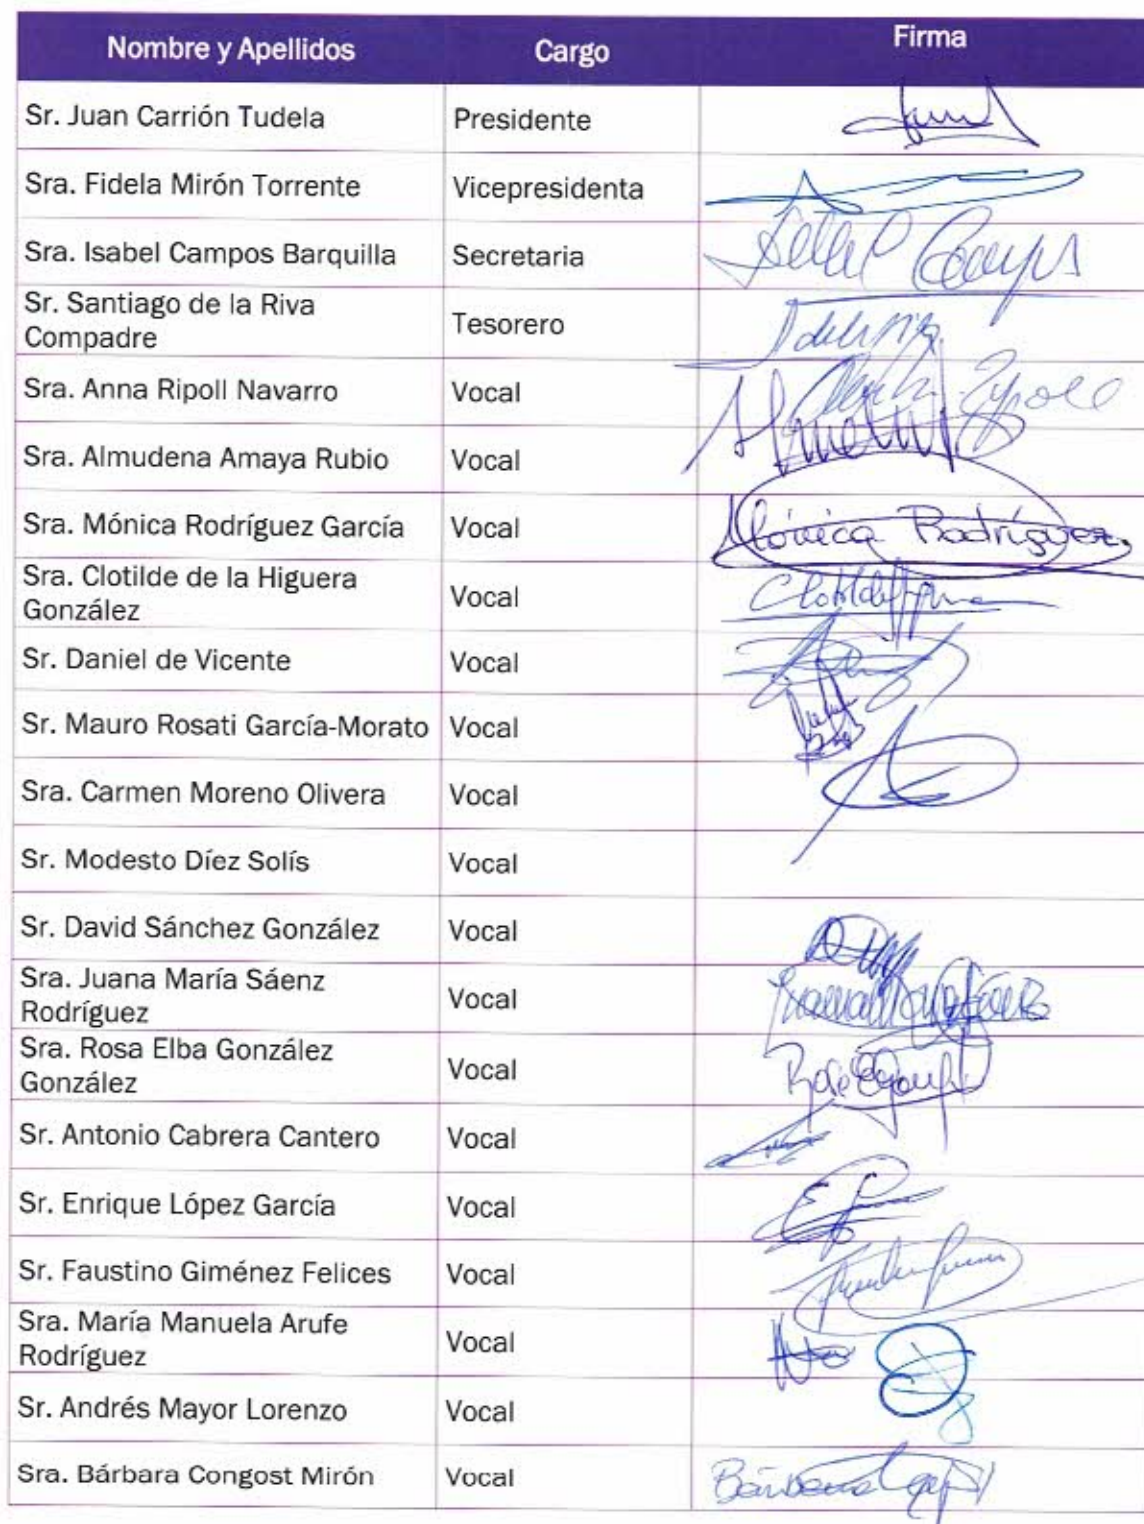 Nombre y Apellidos Cargo Firma
Sr. Juan Carrión Tudela Presidente
Sra. Fidela Mirón Torrente Vicepresidenta
Sra. Isabel Campos Barquilla Secretaria
Sr. Santiago de la Riva
Compadre Tesorero
Sra. Anna Ripoll Navarro Vocal
Sra. Almudena Amaya Rubio Vocal
Sra. Mónica Rodríguez García Vocal Mónica Rodríguez
Sra. Clotilde de la Higuera
González Vocal
Sr. Daniel de Vicente Vocal
Sr. Mauro Rosati García-Morato Vocal
Sra. Carmen Moreno Olivera Vocal
Sr. Modesto Díez Solís Vocal
Sr. David Sánchez González Vocal
Sra. Juana María Sáenz
Rodríguez Vocal
Sra. Rosa Elba González
González Vocal
Sr. Antonio Cabrera Cantero Vocal
Sr. Enrique López García Vocal
Sr. Faustino Giménez Felices Vocal
Sra. María Manuela Arufe
Rodríguez Vocal
Sr. Andrés Mayor Lorenzo Vocal
Sra. Bárbara Congost Mirón Vocal